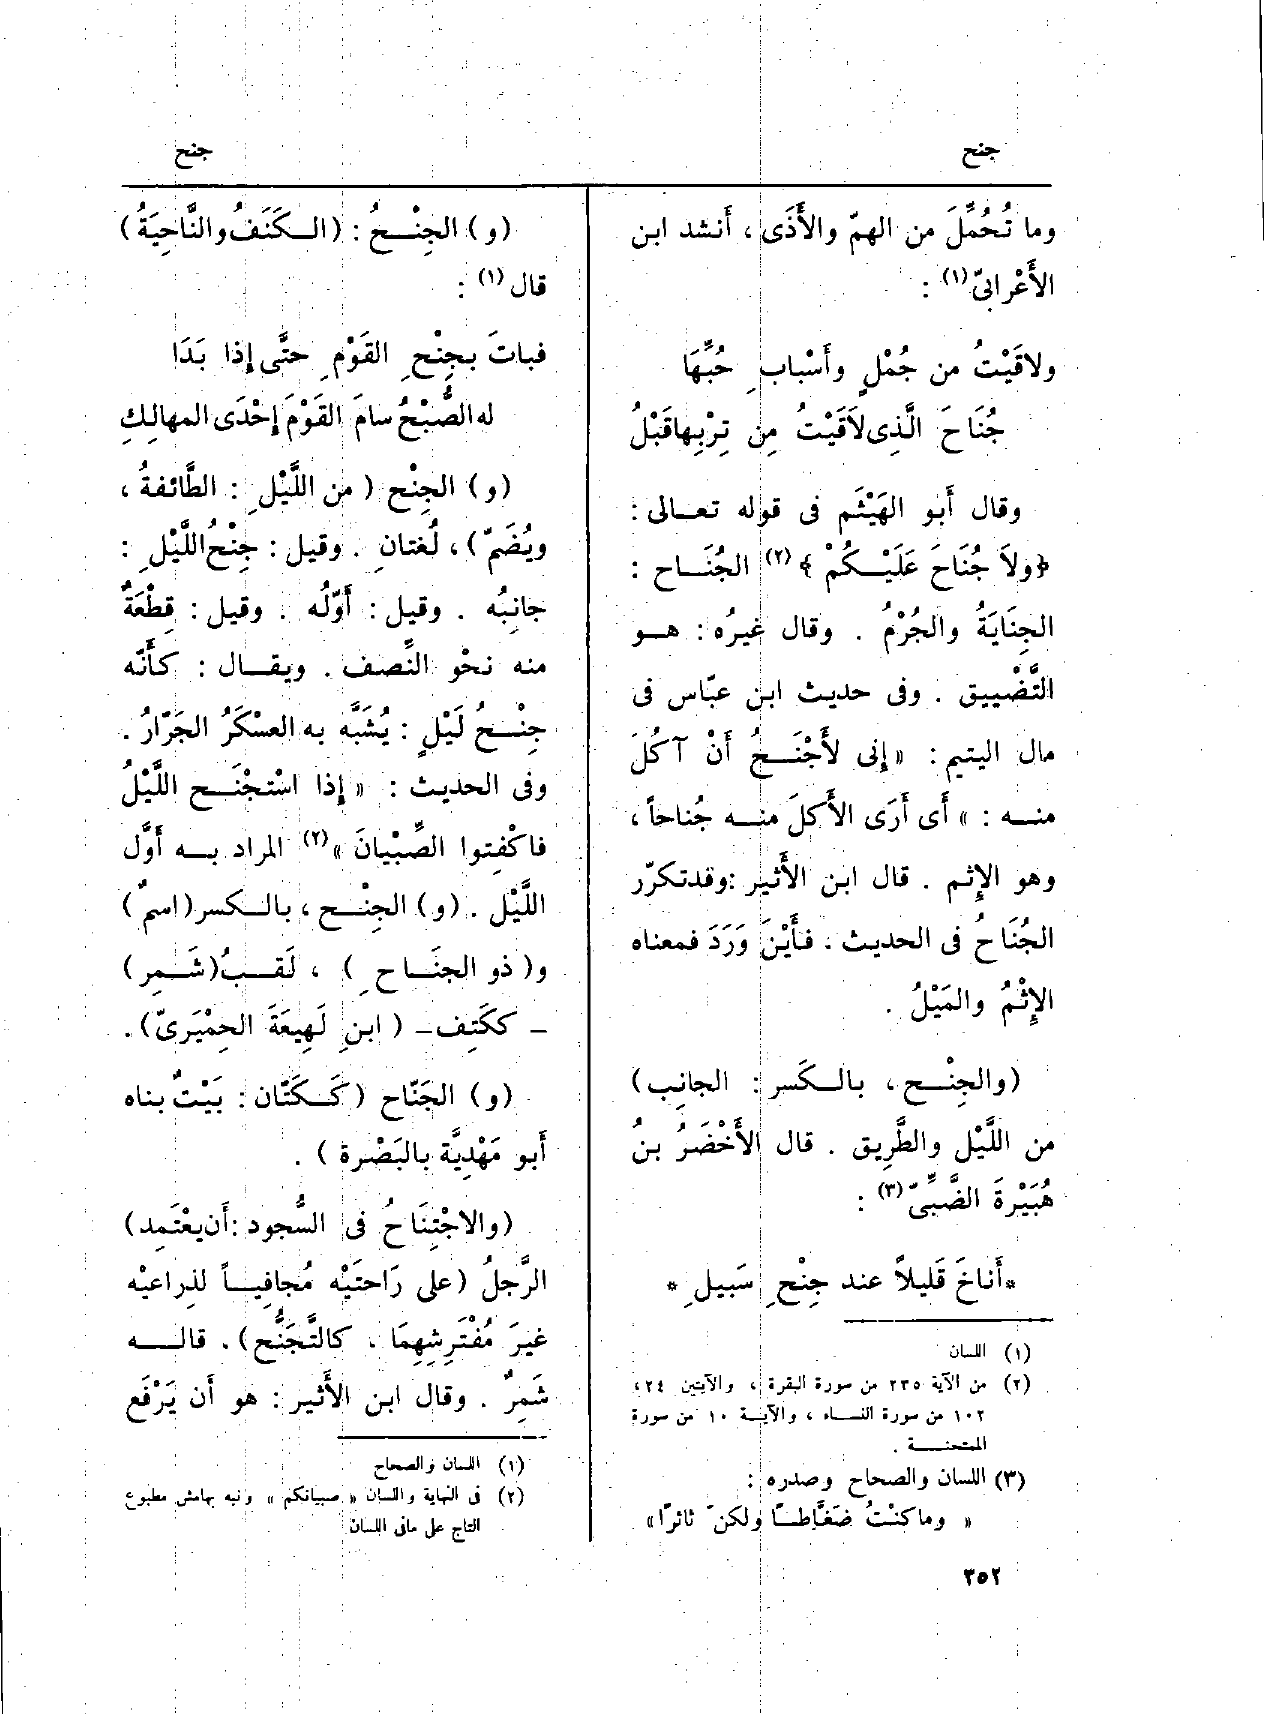 جنح
جنح
وما تُحُمِّلَ من الهمّ والأَذَى ، أَنشد ابن
الأَعْرابىّ (١) :
ولاقَيْتُ من جُمْلٍ وأَسْبابِ حُبِّهَا
جُنَاحَ الَّذِى لاَقَيْتُ مِن تِرْبِها قَبْلُ
وقال أَبو الهَيْثَم فى قوله تعـالى :
﴿ولاَ جُنَاحَ عَلَيْكُمْ﴾ (٢) الجُنَـاح :
الجِنَايَةُ والجُرْمُ . وقال غيرُه : هـو
التَّضْييق . وفى حديث ابن عبّاس فى
مال اليتيم : « إِنى لأَجْنَـحُ أَنْ آكُلَ
منـه : » أَى أَرَى الأَكلَ منـه جُناحاً ،
وهو الإِثم . قال ابن الأَثير : وقد تكرّر
الجُنَاحُ فى الحديث . فأَيْنَ وَرَدَ فمعناه
الإِثْمُ والمَيْلُ .
(والجِنْـح ، بالـكَسر : الجانِب)
من اللَّيْل والطَّرِيق . قال الأَخْضَرُ بنُ
هُبَيْرَةَ الضَّبِّىّ (٣) :
* أَناخَ قَليلاً عند جِنْحِ سَبيلِ *
(١) اللسان
(٢) من الآية ٢٣٥ من سورة البقرة ، والآيتين ٢٤ ،
١٠٢ من سورة النسـاء ، والآيـة ١٠ من سورة
الممتحنـة .
(٣) اللسان والصحاح وصدره :
« وما كنْتُ ضَغَّاطـًا ولكنّ ثائرًا »
٣٥٢
(و) الجِنْـحُ : (الـكَنَفُ والنَّاحِيَةُ)
قال (١) :
فباتَ بجِنْحِ القَوْمِ حتَّى إِذا بَدَا
له الصُّبْحُ سامَ القَوْمَ إِحْدَى المهالِكِ
(و) الجِنْح (من اللَّيْلِ : الطَّائفةُ ،
ويُضَمّ) ، لُغتانِ . وقيل : جِنْحُ اللَّيْلِ :
جانِبُه . وقيل : أَوّلُه . وقيل : قِطْعَةٌ
منه نحْو النِّصف . ويقـال : كأَنّه
جِنْـحُ لَيْلٍ : يُشَبَّه به العسْكَرُ الجَرّارُ .
وفى الحديث : « إِذا اسْتجْنَـح اللَّيْلُ
فاكْفِتوا الصِّبْيانَ » (٢) المراد بـه أَوَّل
اللَّيْل . (و) الجِنْـح ، بالـكسر (اسمٌ)
و(ذو الجنَـاحِ) ، لَقـبُ (شَـمِر)
- ككَتِف - (ابنِ لَهِيعَةَ الحِمْيَرِىّ) .
(و) الجَنّاح (كَـكَتّان : بَيْتٌ بناه
أَبو مَهْدِيَّة بالبَصْرة) .
(والاجْتِنَاحُ فى السُّجود : أَن يعْتَمِد)
الرَّجلُ (على رَاحتَيْه مُجافِيـاً لذِراعيْه
غيرَ مُفْتَرِشِهِمَا ، كالتَّجَنُّح) . قالـه
شَمِرٌ . وقال ابن الأَثير : هو أَن يَرْفَع
(١) اللسان والصحاح
(٢) فى النهاية واللسان « صبيانكم » ونبه بهامش مطبوع
التاج على مافى اللسان